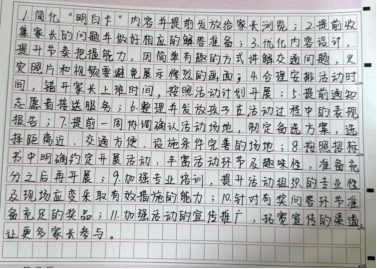 1.简化“明白卡”内容并提前发放给家长浏览；2.提前收
集家长的问题并做好相应的解答准备；3.优化内容设计，
提升节奏把握能力，因简单有趣的方式讲解交通问题，文
案照片和视频需避免展示惨烈的画面；4.合理安排活动时
间，错开家长上班时间，按照活动计划开展；5.提前通知
志愿者接送服务；6.整理并发放孩子在活动过程中的表现
报告；7.提前一周协调确认活动场地，制定备选方案，选
择距离近、交通方便、设施条件完善的场地；8.按照招标
书中明确约定开展活动，丰富活动环节及趣味性，准备充
分之后再开展；9.加强专业培训，提升活动组织的专业性
及现场应变采取有效措施的能力；10.针对有奖问答环节准
备充足的奖品；11.加强活动的宣传推广，拓宽宣传的渠道，
让更多家长参与。